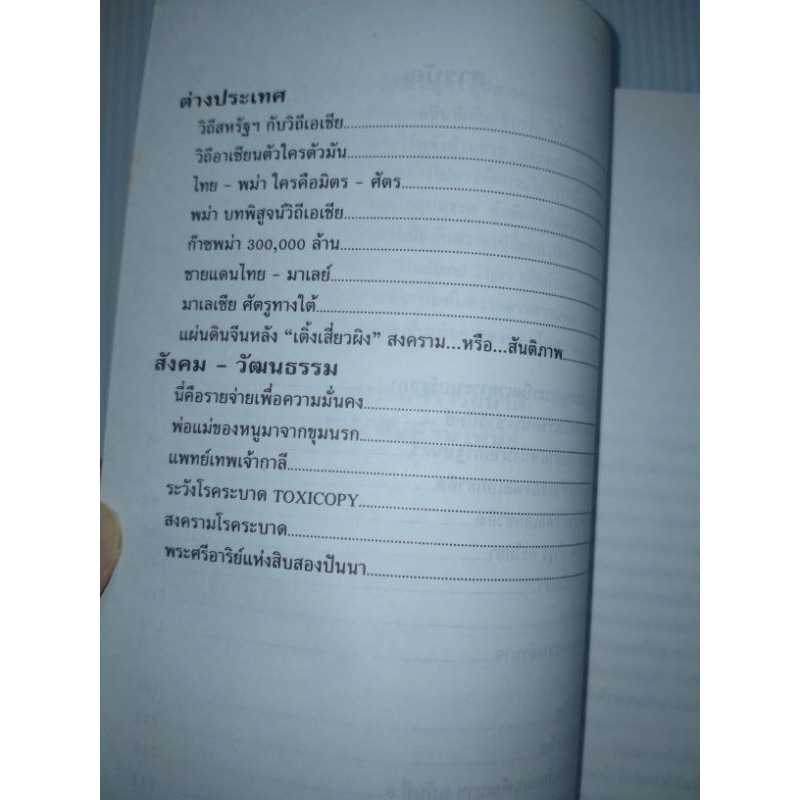 ต่างประเทศ
วิถีสหรัฐฯ กับวิถีเอเซีย
วิถีอาเซียนตัวใครตัวมัน
ไทย - พม่า ใครคือมิตร - ศัตร
พม่า บทพิสูจน์วิถีเอเซีย
ก๊าซพม่า 300,000 ล้าน
ชายแดนไทย - มาเลย์
มาเลเซีย ศัตรูทางใต้
แผ่นดินจีนหลัง “เติ้งเสี่ยวผิง” สงคราม...หรือ...สันติภาพ
สังคม - วัฒนธรรม
นี่คือรายจ่ายเพื่อความมั่นคง
พ่อแม่ของหนูมาจากขุมนรก
แพทย์เทพเจ้ากาลี
ระวังโรคระบาด TOXICOPY
สงครามโรคระบาด
พระศรีอาริย์แห่งสิบสองปันนา